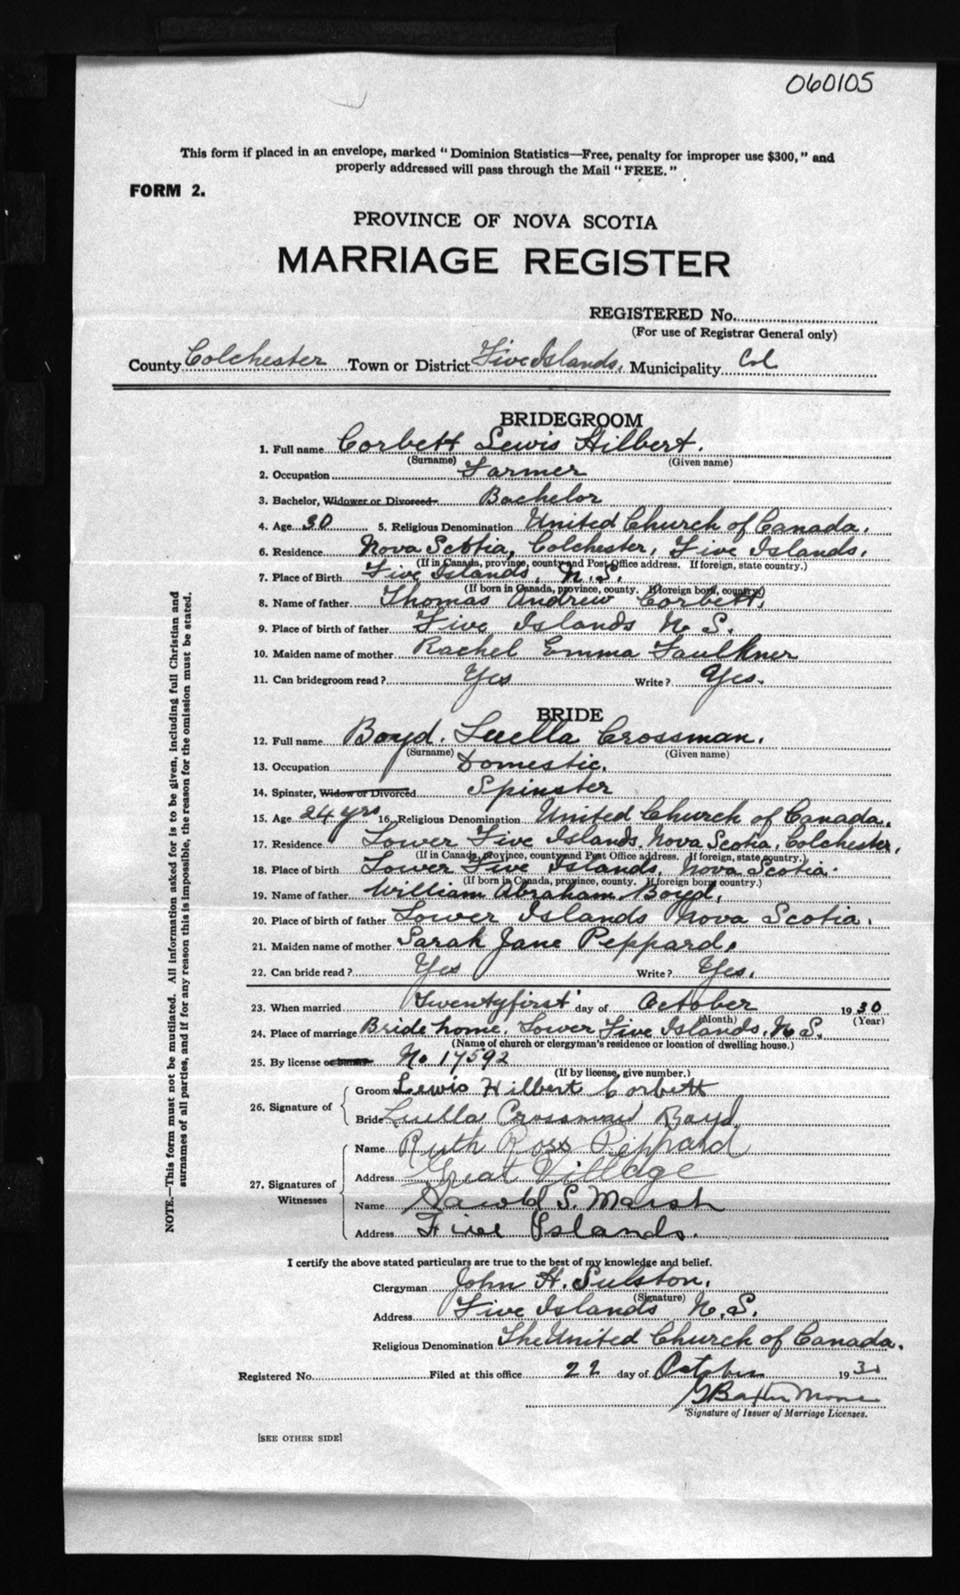 060105
This form if placed in an envelope, marked "Dominion Statistics—Free, penalty for improper use $300," and
properly addressed will pass through the Mail "FREE."
FORM 2.
PROVINCE OF NOVA SCOTIA
MARRIAGE REGISTER
REGISTERED No.
(For use of Registrar General only)
County Colchester Town or District Five Islands. Municipality Col
BRIDEGROOM
1. Full name Corbett Lewis Hilbert.
(Surname) (Given name)
2. Occupation Farmer
3. Bachelor, Widower or Divorced Bachelor
4. Age 30 5. Religious Denomination United Church of Canada.
6. Residence Nova Scotia, Colchester, Five Islands.
(If in Canada, province, county and Post Office address. If foreign, state country.)
7. Place of Birth Five Islands, N.S.
(If born in Canada, province, county. If foreign born, country.)
8. Name of father Thomas Andrew Corbett.
9. Place of birth of father Five Islands N.S.
10. Maiden name of mother Rachel Emma Faulkner
11. Can bridegroom read? Yes Write? Yes.
BRIDE
12. Full name Boyd. Luella Crossman.
(Surname) (Given name)
13. Occupation Domestic.
14. Spinster, Widow or Divorced Spinster
15. Age 24 yrs 16. Religious Denomination United Church of Canada.
17. Residence Lower Five Islands. Nova Scotia, Colchester,
(If in Canada, province, county and Post Office address. If foreign, state country.)
18. Place of birth Lower Five Islands, Nova Scotia.
(If born in Canada, province, county. If foreign born, country.)
19. Name of father William Abraham Boyd.
20. Place of birth of father Lower Islands Nova Scotia.
21. Maiden name of mother Sarah Jane Peppard.
22. Can bride read? Yes Write? Yes.
23. When married Twentyfirst day of October 1930
(Month) (Year)
24. Place of marriage Bride home. Lower Five Islands. N.S.
(Name of church or clergyman's residence or location of dwelling house.)
25. By license or banns No 17592
(If by license, give number.)
26. Signature of
Groom Lewis Hilbert Corbett
Bride Luella Crossman Boyd.
27. Signatures of Witnesses
Name Ruth Ross Peppard
Address Great Village
Name Harold S. Marsh
Address Five Islands.
I certify the above stated particulars are true to the best of my knowledge and belief.
Clergyman John H. Sulston.
(Signature)
Address Five Islands N.S.
Religious Denomination The United Church of Canada.
Registered No. Filed at this office 22 day of October 193
G Baxter
Signature of Issuer of Marriage Licenses.
[SEE OTHER SIDE]
NOTE.—This form must not be mutilated. All information asked for is to be given, including full Christian and
surnames of all parties, and if for any reason this is impossible, the reason for the omission must be stated.